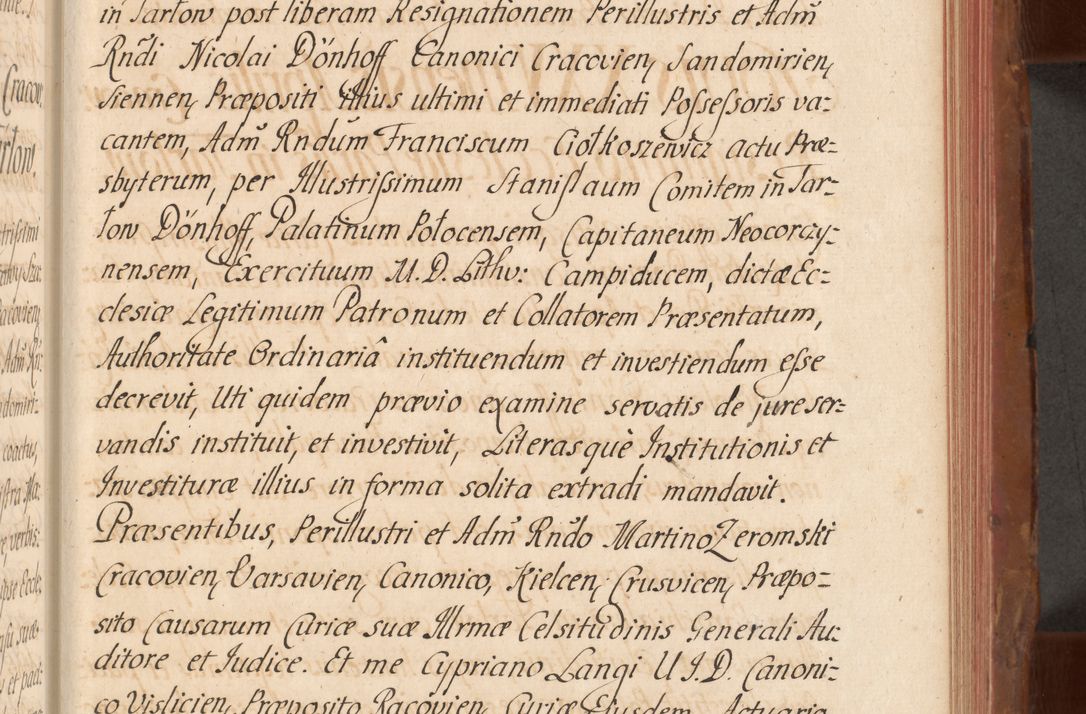 in Tarłow post liberam Resignationem Perillustris et Adm̃
Rñdi Nicolai Dönhoff Canonici Cracovien, Sandomirien,
Siennen, Præpositi illius ultimi et immediati Possessoris va=
cantem, Adm̃ Rndum Franciscum Ciołkoszewicz actu Præ=
sbyterum, per Illustrissimum Stanislaum Comitem in Tar=
łow Dönhoff, Palatinum Połocensem, Capitaneum Neocorczy=
nensem, Exercituum M. D. Lithv: Campiducem, dictæ Ec=
clesiæ Legitimum Patronum et Collatorem Præsentatum,
Authoritate Ordinariâ instituendum et investiendum esse
decrevit, Uti quidem prævio examine servatis de jure ser=
vandis instituit, et investivit, Literasquè Institutionis et
Investituræ illius in forma solita extradi mandavit.
Præsentibus, Perillustri et Adm̃ Rñdo Martino Zeromski
Cracovien, Varsavien, Canonico, Kielcen, Crusvicen, Præpo=
sito Causarum Curiæ suæ Illrmæ Celsitudinis Generali Au=
ditore et Judice. Et me Cypriano Langi U J. D. Canoni=
co Vislicien, Præposito Racovien, Curiæ Ejusdem Actuario
Cracov,